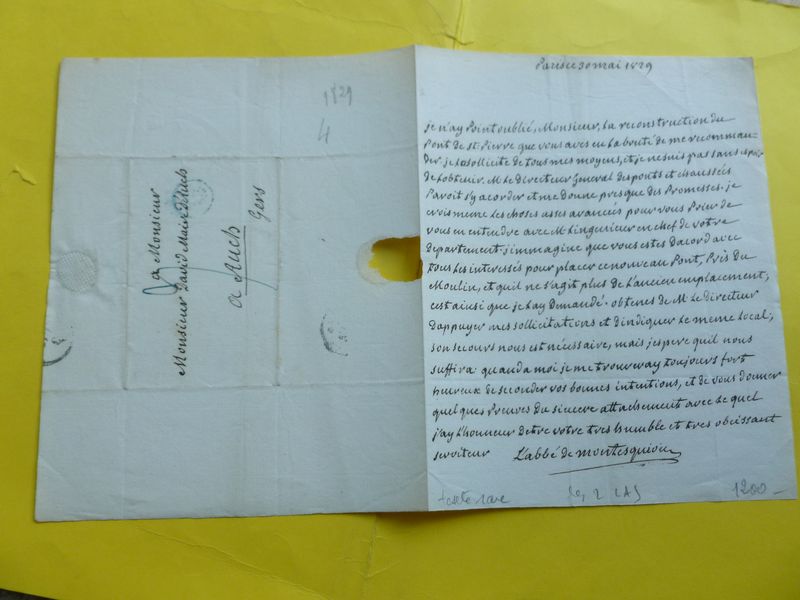 1829
4
a Monsieur
Monsieur David Maire d'Auch
a Auch
Gers
Paris ce 30 mai 1829
je n'ay Point oublié, Monsieur, la reconstruction du
Pont de st. Pierre que vous aves eu la bonté de me recomman-
der je la sollicite de tous mes moyens, et je ne suis pas sans espoir
de l'obtenir. M le Directeur General des ponts et chaussées
Paroit s'y acorder et me donne presque des Promesses. je
crois meme les choses asses avancées pour vous Prier de
vous en entendre avec M l'ingenieur en chef de votre
departement. j'immagine que vous estes dacord avec
tous les interessés pour placer ce nouveau Pont, Près du
Moulin, et quil ne s'agit plus de l'ancien emplacement,
cest ainsi que je l'ay demandé. obtenes de M le directeur
d'appuyer mes sollicitations et d'indiquer le meme local;
son secours nous est nécessaire, mais j'espere quil nous
suffira quand a moi je me trouveray toujours fort
heureux de seconder vos bonnes intentions, et de vous donner
quelques Preuves du sincere attachement avec le quel
j'ay l'honneur detre votre tres humble et tres obeissant
serviteur L'abbé de montesquiou
texte rare les 2 LAS 1200 -